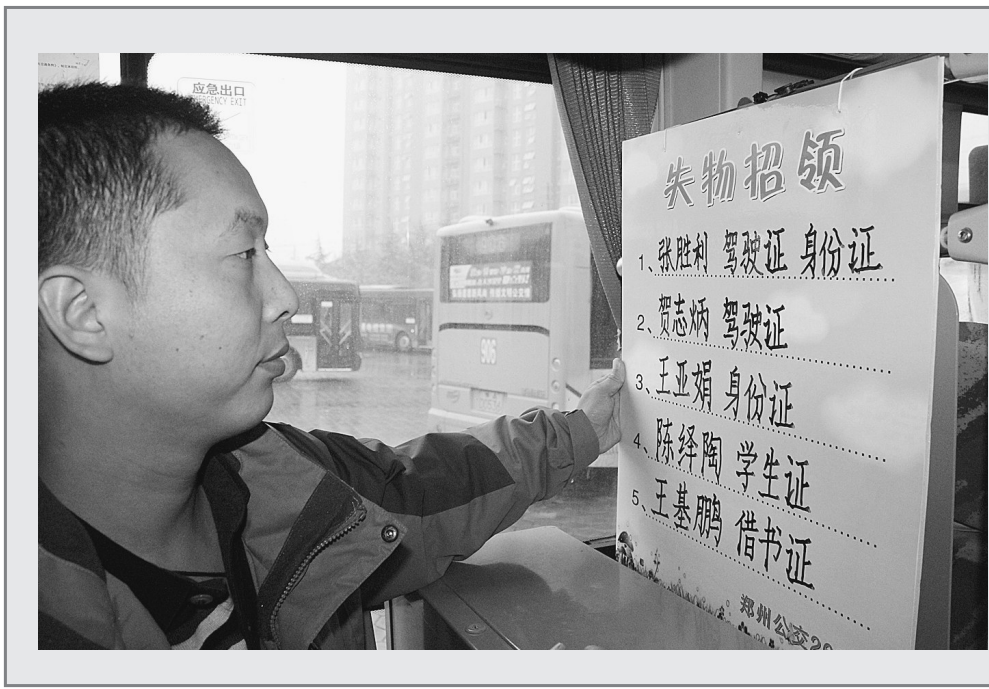 应急出口
EMERGENCY EXIT
失物招领
1、张胜利 驾驶证 身份证
2、贺志炳 驾驶证
3、王亚娟 身份证
4、陈绎陶 学生证
5、王基鹏 借书证
郑州公交2
906